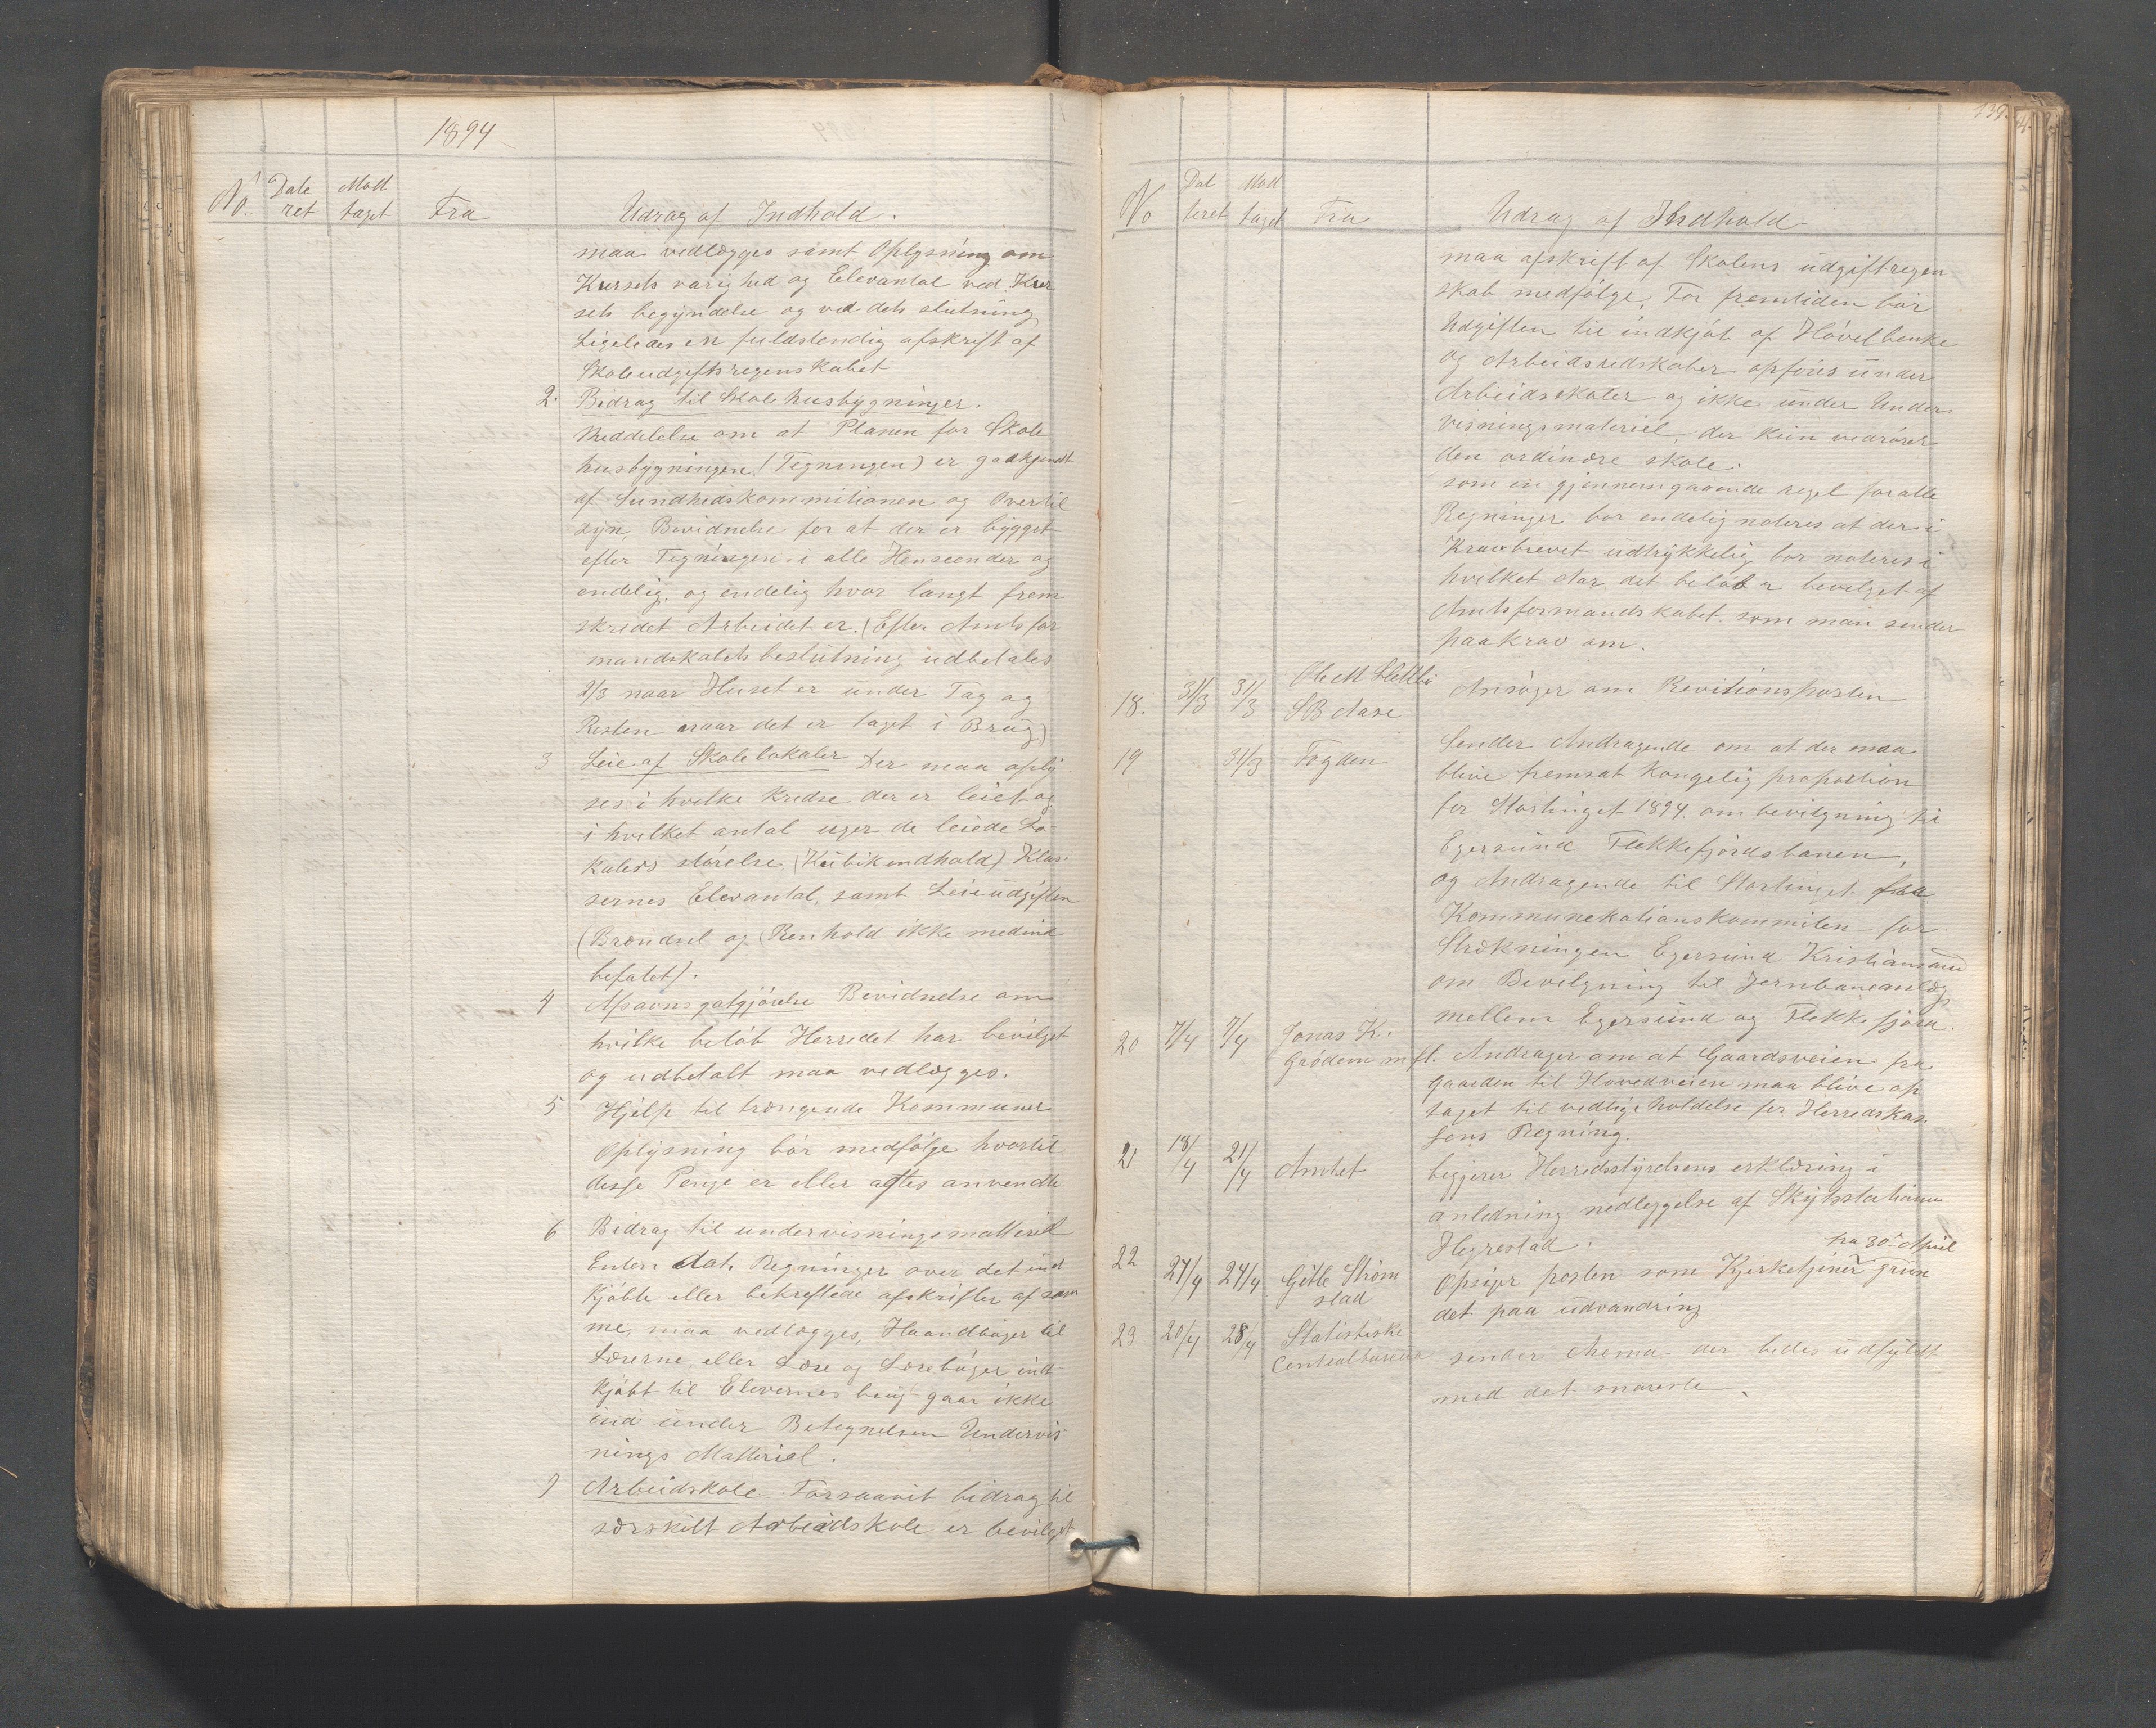 1894
No. Date ret Mod taget Fra Udrag af Indhold.
maa vedlægges samt Oplysning om
Kursets varighed og Elevantal ved Kur
sets begyndelse og ved dets slutning
Ligeledes en fuldstendig afskrift af
Skoleudgiftsregenskabet
2. Bidrag til Skolehusbygninger.
Meddelelse om at Planen for Skole
husbygningen (Tegningen) er godkjendt
af Sundhedskommitionen og Overtil
syn, Bevidnelse for at der er bygget
efter Tegningen i alle Henseender og
endelig, og endelig hvor langt frem
skredet Arbeidet er. (Efter Amtsfor
mandskabets beslutning udbetales
2/3 naar Huset er under Tag og
Resten naar det er taget i Brug)
3 Leie af Skolelokaler Der maa oply
ses i hvilke Kredse der er leiet og
i hvilket antal uger de leiede Lo-
kalers störelse (Kubikindhold) Klas-
sernes Elevantal, samt Leieudgiften
(Brændsel og Renhold ikke medind
befatet).
4 Afsavnsgotgjörelse Bevidnelse om
hvilke belöb Herredet har bevilget
og udbetalt maa vedlægges.
5 Hjelp til trængende Kommuner
Oplysning bör medfölge hvortil
disse Penge er eller agtes anvendte
6 Bidrag til undervisningsmatteriel
Enten dat. Regninger over det ind
kjöbte eller bekreftede afskrifter af sam
me, maa vedlægges, Haandböger til
Lærerne, eller Læse og Lærebøger ind-
kjöbt til Elevernes brug gaar ikke
ind under Betegnelsen Undervis
nings Matterial.
7 Arbeidskole Forsaavit bidrag til
særskilt Arbeidskole er bevilget
139
No Dat teret Mod taget Fra Udrag af Indhold
maa afskrift af Skolens udgiftregen
skab medfölge. For fremtiden bör
Udgiften til indkjöb af Hövelbenke
og Arbeidsredskaber opföres under
Arbeidskoler og ikke under Under
visningsmateriel, der kun vedrörer
den ordinære skole.
som en gjennemgaaende regel for alle
Regninger bor endelig noteres at der i
Kravbrevet udtrykkelig bor noteres i
hvilket Aar det belöb er bevelget af
Amtsformandskabet som man sender
paakrav om.
18. 31/3 31/3 Ole M SB Aase Ansöger om Revitionsposten
19 31/3 Fogden Sender Andragende om at der maa
blive fremsat Kongelig propostion
for Stortinget 1894. om bevilgning til
Egersund Flekkefjordsbanen,
og Andragende til Stortinget fra
Kommunekationskommiten for
Strækningen Egersund Kristiansand
om Bevilgning til Jernbaneanlæg
mellem Egersund og Flekkefjord.
20 7/4 7/4 Jonas K. Grödem m fl. Andrager om at Gaardsveien fra
Gaarden til Hovedveien maa blive op
taget til vedligeholdelse for Herredskas
sens Regning.
21 18/4 21/4 Amtet begjerer Herredsstyrelsens erklæring i
anledning nedleggelse af Skydsstationen
Hegrestad.
22 24/4 24/4 Gitle Ström stad Opsiger posten som Kjerketjener fra 30te April grun
det paa udvandring
23 20/4 28/4 Statistiske Centralbureau sender skema der bedes udfyldt
med det snareste.